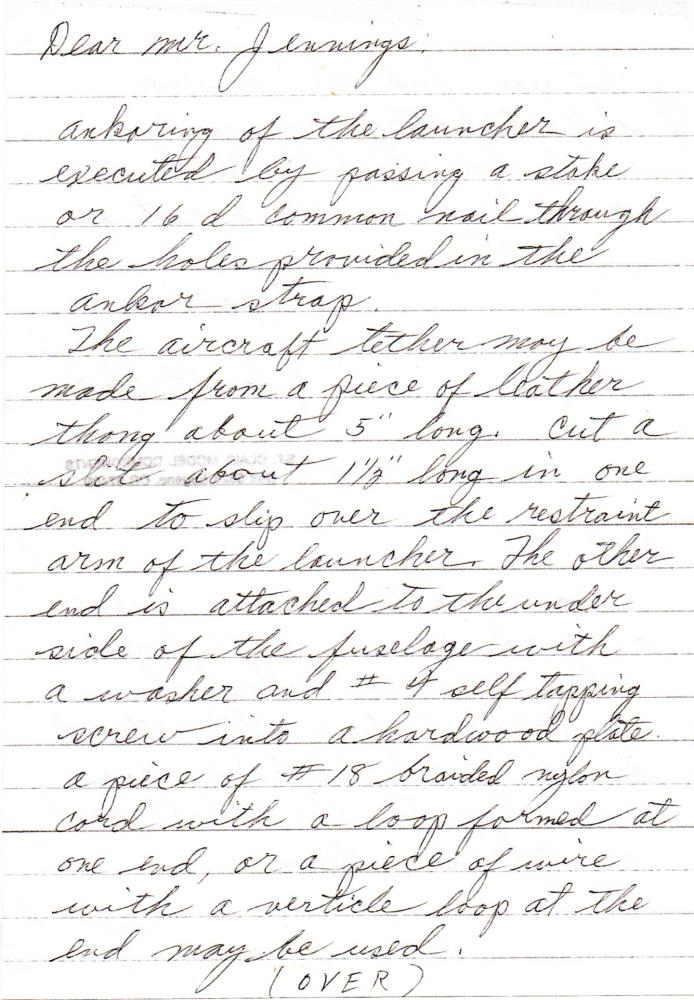 Dear Mr. Jennings:
Ankoring of the launcher is
executed by passing a stake
or 16 d common nail through
the holes provided in the
ankor strap.
The aircraft tether may be
made from a piece of leather
thong about 5" long. Cut a
slit about 1 1/2" long in one
end to slip over the restraint
arm of the launcher. The other
end is attached to the under
side of the fuselage with
a washer and # 4 self tapping
screw into a hardwood plate.
A piece of # 18 braided nylon
cord with a loop formed at
one end, or a piece of wire
with a verticle loop at the
end may be used.
(OVER)